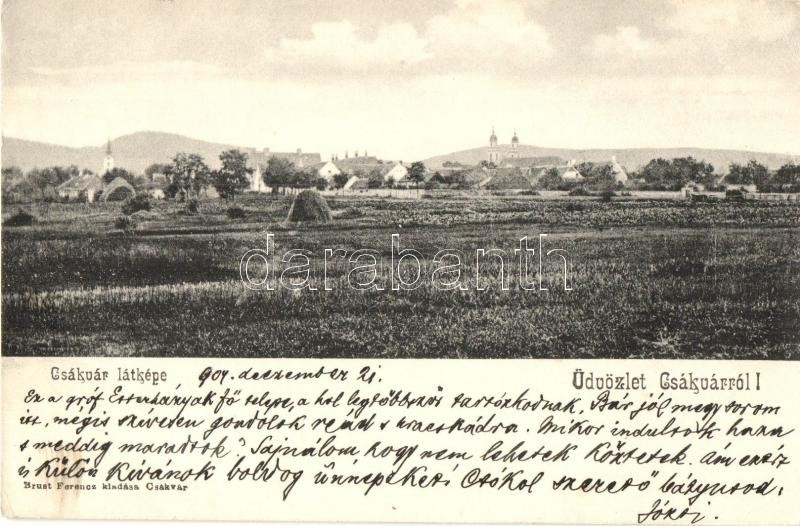 darabanth
Csákvár látképe 904. deczember 21. Üdvözlet Csákvárról!
Ez a gróf Eszterházyak fő telepe, a hol legtöbbször tartózkodnak. Bár jól megy sorom
itt, mégis szívesen gondolok reád s kracskádra. Mikor indultok haza
s meddig maradtok? Sajnálom hogy nem lehetek köztetek. Ám
is külön kívánok boldog ünnepeket! Csókol szerető bátyusod:
Brust Ferencz kiadása Csákvár
Józsi.